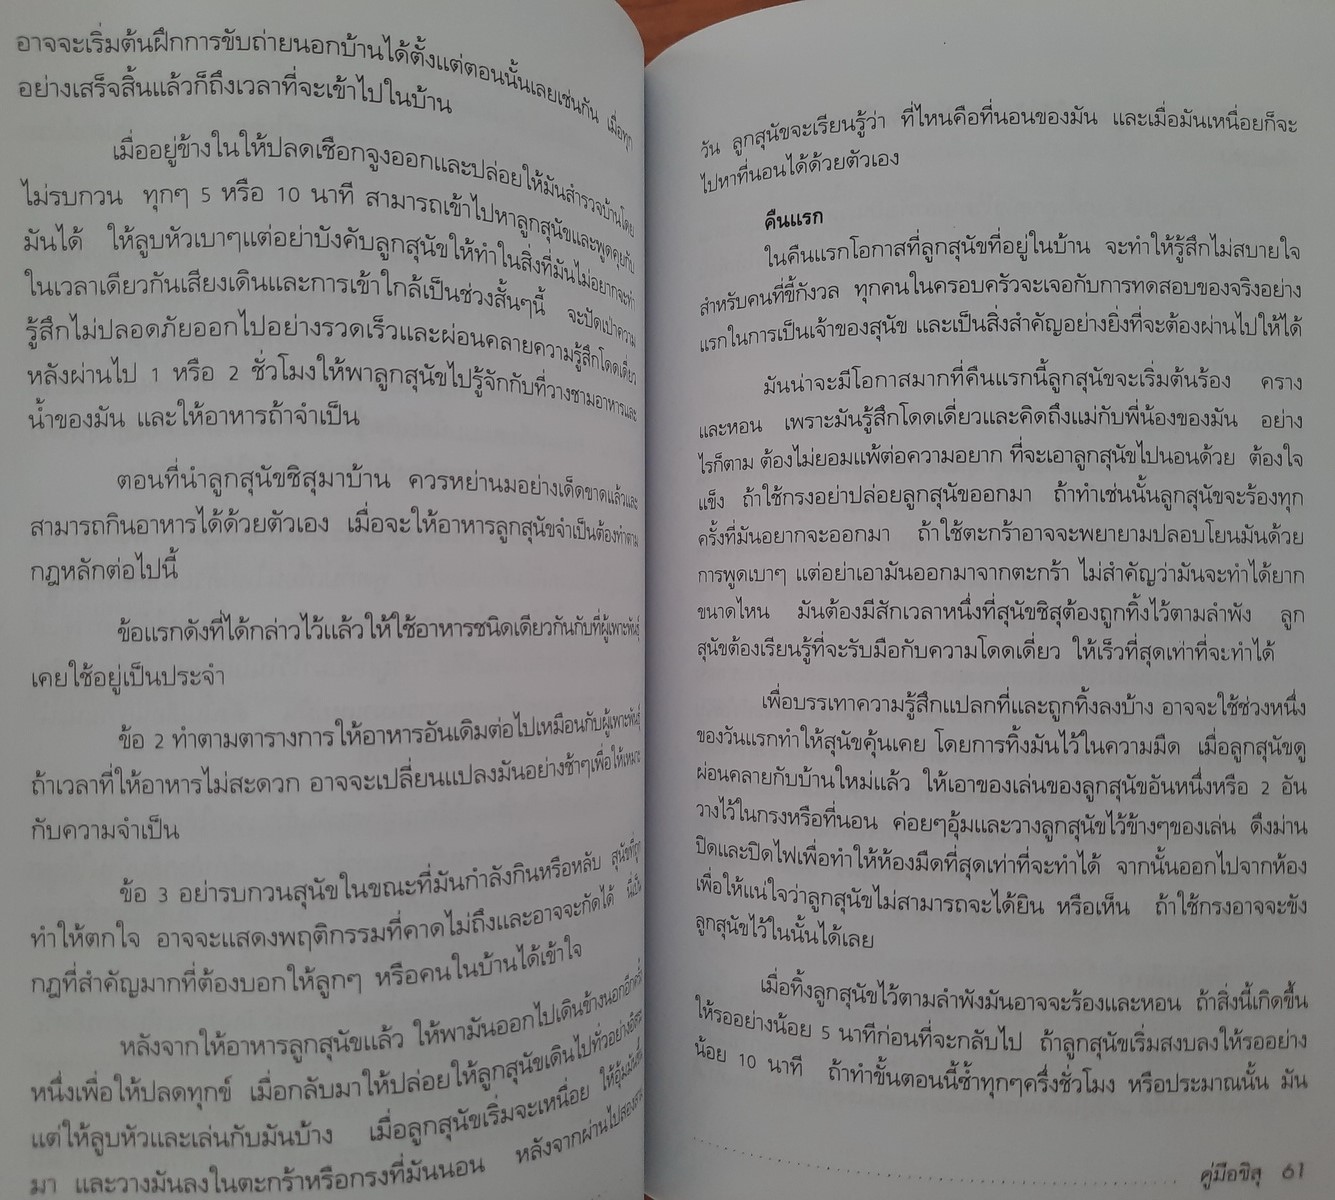 อาจจะเริ่มต้นฝึกการขับถ่ายนอกบ้านได้ตั้งแต่ตอนนั้นเลยเช่นกัน เมื่อทุก
อย่างเสร็จสิ้นแล้วก็ถึงเวลาที่จะเข้าไปในบ้าน
เมื่ออยู่ข้างในให้ปลดเชือกจูงออกและปล่อยให้มันสำรวจบ้านโดย
ไม่รบกวน ทุกๆ 5 หรือ 10 นาที สามารถเข้าไปหาลูกสุนัขและพูดคุยกับ
มันได้ ให้ลูบหัวเบาๆแต่อย่าบังคับลูกสุนัขให้ทำในสิ่งที่มันไม่อยากจะทำ
ในเวลาเดียวกันเสียงเดินและการเข้าใกล้เป็นช่วงสั้นๆนี้ จะปัดเป่าความ
รู้สึกไม่ปลอดภัยออกไปอย่างรวดเร็วและผ่อนคลายความรู้สึกโดดเดี่ยว
หลังผ่านไป 1 หรือ 2 ชั่วโมงให้พาลูกสุนัขไปรู้จักกับที่วางชามอาหารและ
น้ำของมัน และให้อาหารถ้าจำเป็น
ตอนที่นำลูกสุนัขชิสุมาบ้าน ควรหย่านมอย่างเด็ดขาดแล้วและ
สามารถกินอาหารได้ด้วยตัวเอง เมื่อจะให้อาหารลูกสุนัขจำเป็นต้องทำตาม
กฎหลักต่อไปนี้
ข้อแรกดังที่ได้กล่าวไว้แล้วให้ใช้อาหารชนิดเดียวกันกับที่ผู้เพาะพันธุ์
เคยใช้อยู่เป็นประจำ
ข้อ 2 ทำตามตารางการให้อาหารอันเดิมต่อไปเหมือนกับผู้เพาะพันธุ์
ถ้าเวลาที่ให้อาหารไม่สะดวก อาจจะเปลี่ยนแปลงมันอย่างช้าๆเพื่อให้เหมาะ
กับความจำเป็น
ข้อ 3 อย่ารบกวนสุนัขในขณะที่มันกำลังกินหรือหลับ สุนัขที่ถูก
ทำให้ตกใจ อาจจะแสดงพฤติกรรมที่คาดไม่ถึงและอาจจะกัดได้ นี่เป็น
กฎที่สำคัญมากที่ต้องบอกให้ลูกๆ หรือคนในบ้านได้เข้าใจ
หลังจากให้อาหารลูกสุนัขแล้ว ให้พามันออกไปเดินข้างนอกอีกครั้ง
หนึ่งเพื่อให้ปลดทุกข์ เมื่อกลับมาให้ปล่อยให้ลูกสุนัขเดินไปทั่วอย่างอิสระ
แต่ให้ลูบหัวและเล่นกับมันบ้าง เมื่อลูกสุนัขเริ่มจะเหนื่อย ให้อุ้มมันขึ้น
มา และวางมันลงในตะกร้าหรือกรงที่มันนอน หลังจากผ่านไปสองสาม
วัน ลูกสุนัขจะเรียนรู้ว่า ที่ไหนคือที่นอนของมัน และเมื่อมันเหนื่อยก็จะ
ไปหาที่นอนได้ด้วยตัวเอง
คืนแรก
ในคืนแรกโอกาสที่ลูกสุนัขที่อยู่ในบ้าน จะทำให้รู้สึกไม่สบายใจ
สำหรับคนที่ขี้กังวล ทุกคนในครอบครัวจะเจอกับการทดสอบของจริงอย่าง
แรกในการเป็นเจ้าของสุนัข และเป็นสิ่งสำคัญอย่างยิ่งที่จะต้องผ่านไปให้ได้
มันน่าจะมีโอกาสมากที่คืนแรกนี้ลูกสุนัขจะเริ่มต้นร้อง คราง
และหอน เพราะมันรู้สึกโดดเดี่ยวและคิดถึงแม่กับพี่น้องของมัน อย่าง
ไรก็ตาม ต้องไม่ยอมแพ้ต่อความอยาก ที่จะเอาลูกสุนัขไปนอนด้วย ต้องใจ
แข็ง ถ้าใช้กรงอย่าปล่อยลูกสุนัขออกมา ถ้าทำเช่นนั้นลูกสุนัขจะร้องทุก
ครั้งที่มันอยากจะออกมา ถ้าใช้ตะกร้าอาจจะพยายามปลอบโยนมันด้วย
การพูดเบาๆ แต่อย่าเอามันออกมาจากตะกร้า ไม่สำคัญว่ามันจะทำได้ยาก
ขนาดไหน มันต้องมีสักเวลาหนึ่งที่สุนัขชิสุต้องถูกทิ้งไว้ตามลำพัง ลูก
สุนัขต้องเรียนรู้ที่จะรับมือกับความโดดเดี่ยว ให้เร็วที่สุดเท่าที่จะทำได้
เพื่อบรรเทาความรู้สึกแปลกที่และถูกทิ้งลงบ้าง อาจจะใช้ช่วงหนึ่ง
ของวันแรกทำให้สุนัขคุ้นเคย โดยการทิ้งมันไว้ในความมืด เมื่อลูกสุนัขดู
ผ่อนคลายกับบ้านใหม่แล้ว ให้เอาของเล่นของลูกสุนัขอันหนึ่งหรือ 2 อัน
วางไว้ในกรงหรือที่นอน ค่อยๆอุ้มและวางลูกสุนัขไว้ข้างๆของเล่น ดึงม่าน
ปิดและปิดไฟเพื่อทำให้ห้องมืดที่สุดเท่าที่จะทำได้ จากนั้นออกไปจากห้อง
เพื่อให้แน่ใจว่าลูกสุนัขไม่สามารถจะได้ยิน หรือเห็น ถ้าใช้กรงอาจจะขัง
ลูกสุนัขไว้ในนั้นได้เลย
เมื่อทิ้งลูกสุนัขไว้ตามลำพังมันอาจจะร้องและหอน ถ้าสิ่งนี้เกิดขึ้น
ให้รออย่างน้อย 5 นาทีก่อนที่จะกลับไป ถ้าลูกสุนัขเริ่มสงบลงให้รออย่าง
น้อย 10 นาที ถ้าทำขั้นตอนนี้ซ้ำทุกๆครึ่งชั่วโมง หรือประมาณนั้น มัน
คู่มือชิสุ 61